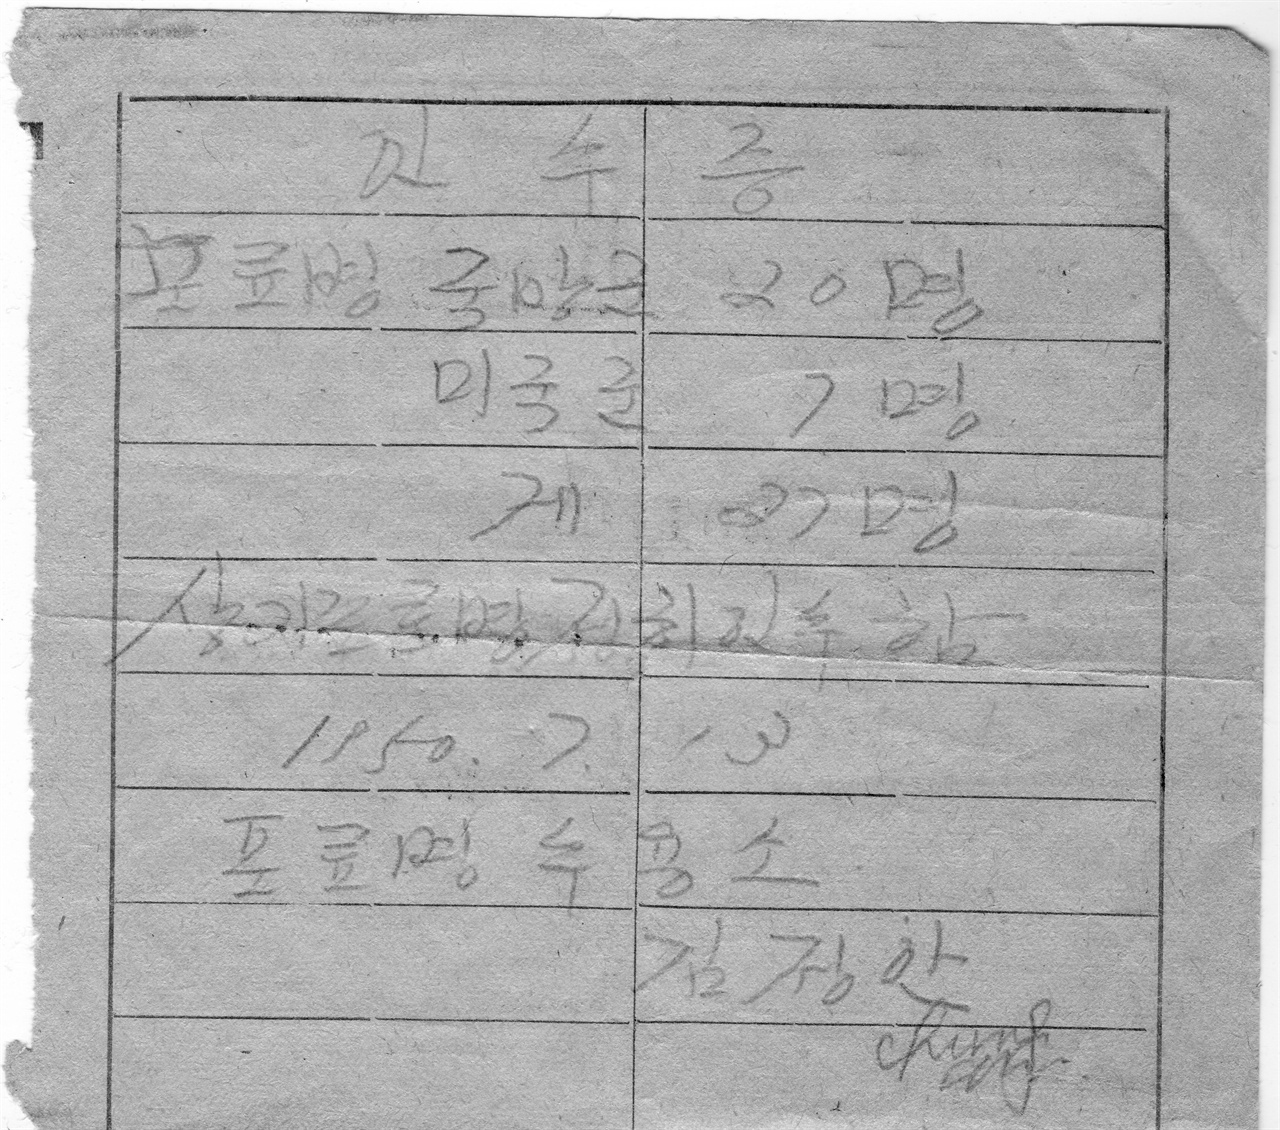 인 수 증
포료병 국방군 20명
미국군 7명
게 27명
상기포로병정히인수함
1950. 7. 13
포료병 수용소
김정안